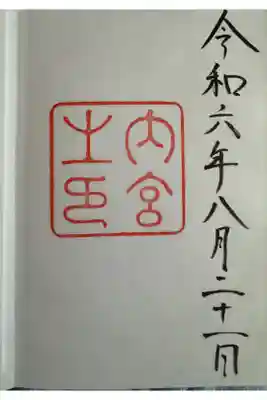 令和六年八月二十一日
内宮
之印